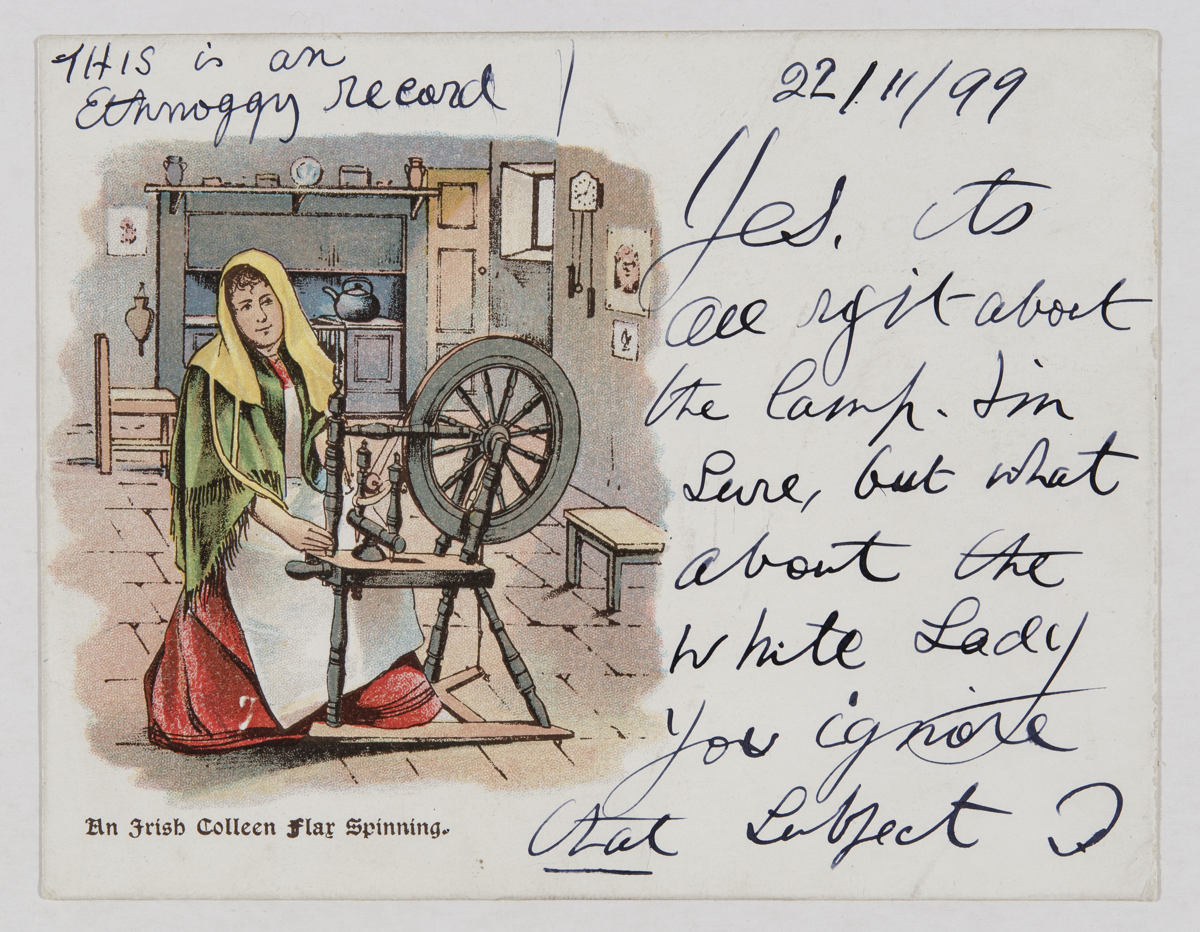 THIS is an
Ethnoggy record
22/11/99
Yes. its
all rgit about
the lamp. I'm
Sure, but what
about the
White Lady
you ignore
that subject ?
An Irish Colleen Flax Spinning.